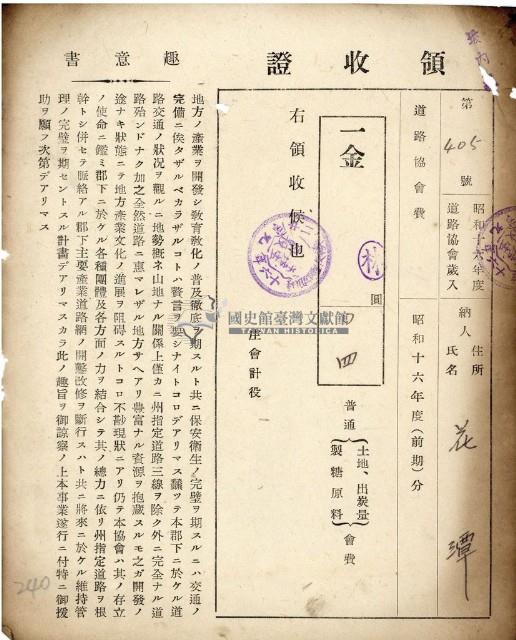 領收證
第405號
昭和十六年度
道路協會歲入
納人
住所
氏名
花
潭
道路協會費
昭和十六年度(前期)分
一金
圓
四
普通
土地、出炭量
製糖原料
會費
右領收候也
會計役
趣意書
地方ノ產業ヲ開發シ教育敎化ノ普及徹底ヲ期スルト共ニ保安衛生ノ完璧ヲ期スルニハ交通ノ
完備ニ俟タザルベカラザルコトハ贅言ヲ要シナイトコロデアリマス飜ツテ本郡下ニ於ケル道
路交通ノ狀況ヲ觀ルニ地勢槪ネ山地ナル關係上僅カニ州指定道路三線ヲ除ク外ニ完全ナル道
路殆ンドナク加之全然道路ニ惠マレザル地方サヘアリ豐富ナル資源ヲ抱藏スルモ之ガ開發ノ
途ナキ狀態ニテ地方產業文化ノ進展ヲ阻碍スルトコロ不尠現狀ニアリ仍テ本協會ハ其ノ存立
ノ使命ニ鑑ミ郡下ニ於ケル各種團體及各方面ノ力ヲ結合シテ其ノ總力ニ依リ州指定道路ヲ根
幹トシ併セテ脈絡アル郡下主要產業道路網ノ開鑿改修ヲ斷行スルト共ニ將來ニ於ケル維持管
理ノ完璧ヲ期セントスル計畫デアリマスカラ此ノ趣旨ヲ御諒察ノ上本事業遂行ニ付特ニ御援
助ヲ願フ次第デアリマス
240
國史館臺灣文獻館
TAIWAN HISTORICA